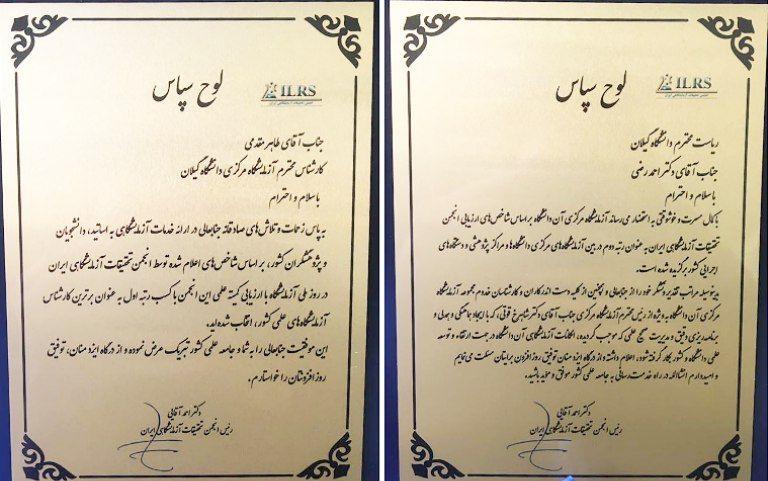 لوح سپاس
ILRS
انجمن تحقیقات آزمایشگاهی ایران
جناب آقای طاهر مقدمی
کارشناس محترم آزمایشگاه مرکزی دانشگاه گیلان
با سلام و احترام
به پاس زحمات و تلاش‌های صادقانه جنابعالی در ارائه خدمات آزمایشگاهی به اساتید، دانشجویان
و پژوهشگران کشور، بر اساس شاخص‌های اعلام شده توسط انجمن تحقیقات آزمایشگاهی ایران
در روز ملی آزمایشگاه با ارزیابی کمیته علمی این انجمن با کسب رتبه اول به عنوان برترین کارشناس
آزمایشگاه‌های علمی کشور، انتخاب شده‌اید.
این موفقیت جنابعالی را به شما و جامعه علمی کشور تبریک عرض نموده و از درگاه ایزد منان، توفیق
روز افزونتان را خواستارم.
دکتر احمد آقایی
رئیس انجمن تحقیقات آزمایشگاهی ایران
لوح سپاس
ILRS
انجمن تحقیقات آزمایشگاهی ایران
ریاست محترم دانشگاه گیلان
جناب آقای دکتر احمد رضی
با سلام و احترام
با کمال مسرت و خوشوقتی به استحضار می‌رساند آزمایشگاه مرکزی آن دانشگاه بر اساس شاخص‌های ارزیابی انجمن
تحقیقات آزمایشگاهی ایران به عنوان رتبه دوم در بین آزمایشگاه‌های مرکزی دانشگاه‌ها و مراکز پژوهشی و دستگاه‌های
اجرایی کشور برگزیده شده است.
بدینوسیله مراتب تقدیر و تشکر خود را از جنابعالی و همچنین از کلیه دست اندرکاران و کارشناسان خدوم مجموعه آزمایشگاه
مرکزی آن دانشگاه به ویژه از رئیس محترم آزمایشگاه مرکزی جناب آقای دکتر شاهرخ قوتی، که با ایجاد هماهنگی و همدلی و
برنامه‌ریزی دقیق و مدیریت صحیح علمی که موجب گردیده، امکانات آزمایشگاهی آن دانشگاه در جهت ارتقاء و توسعه
علمی دانشگاه و کشور بکار گرفته شود، اعلام داشته و از درگاه ایزد منان توفیق روز افزون برایتان مسئلت می‌نمایم
و امیدوارم انشاالله در راه خدمت رسانی به جامعه علمی کشور موفق و موید باشید.
دکتر احمد آقایی
رئیس انجمن تحقیقات آزمایشگاهی ایران